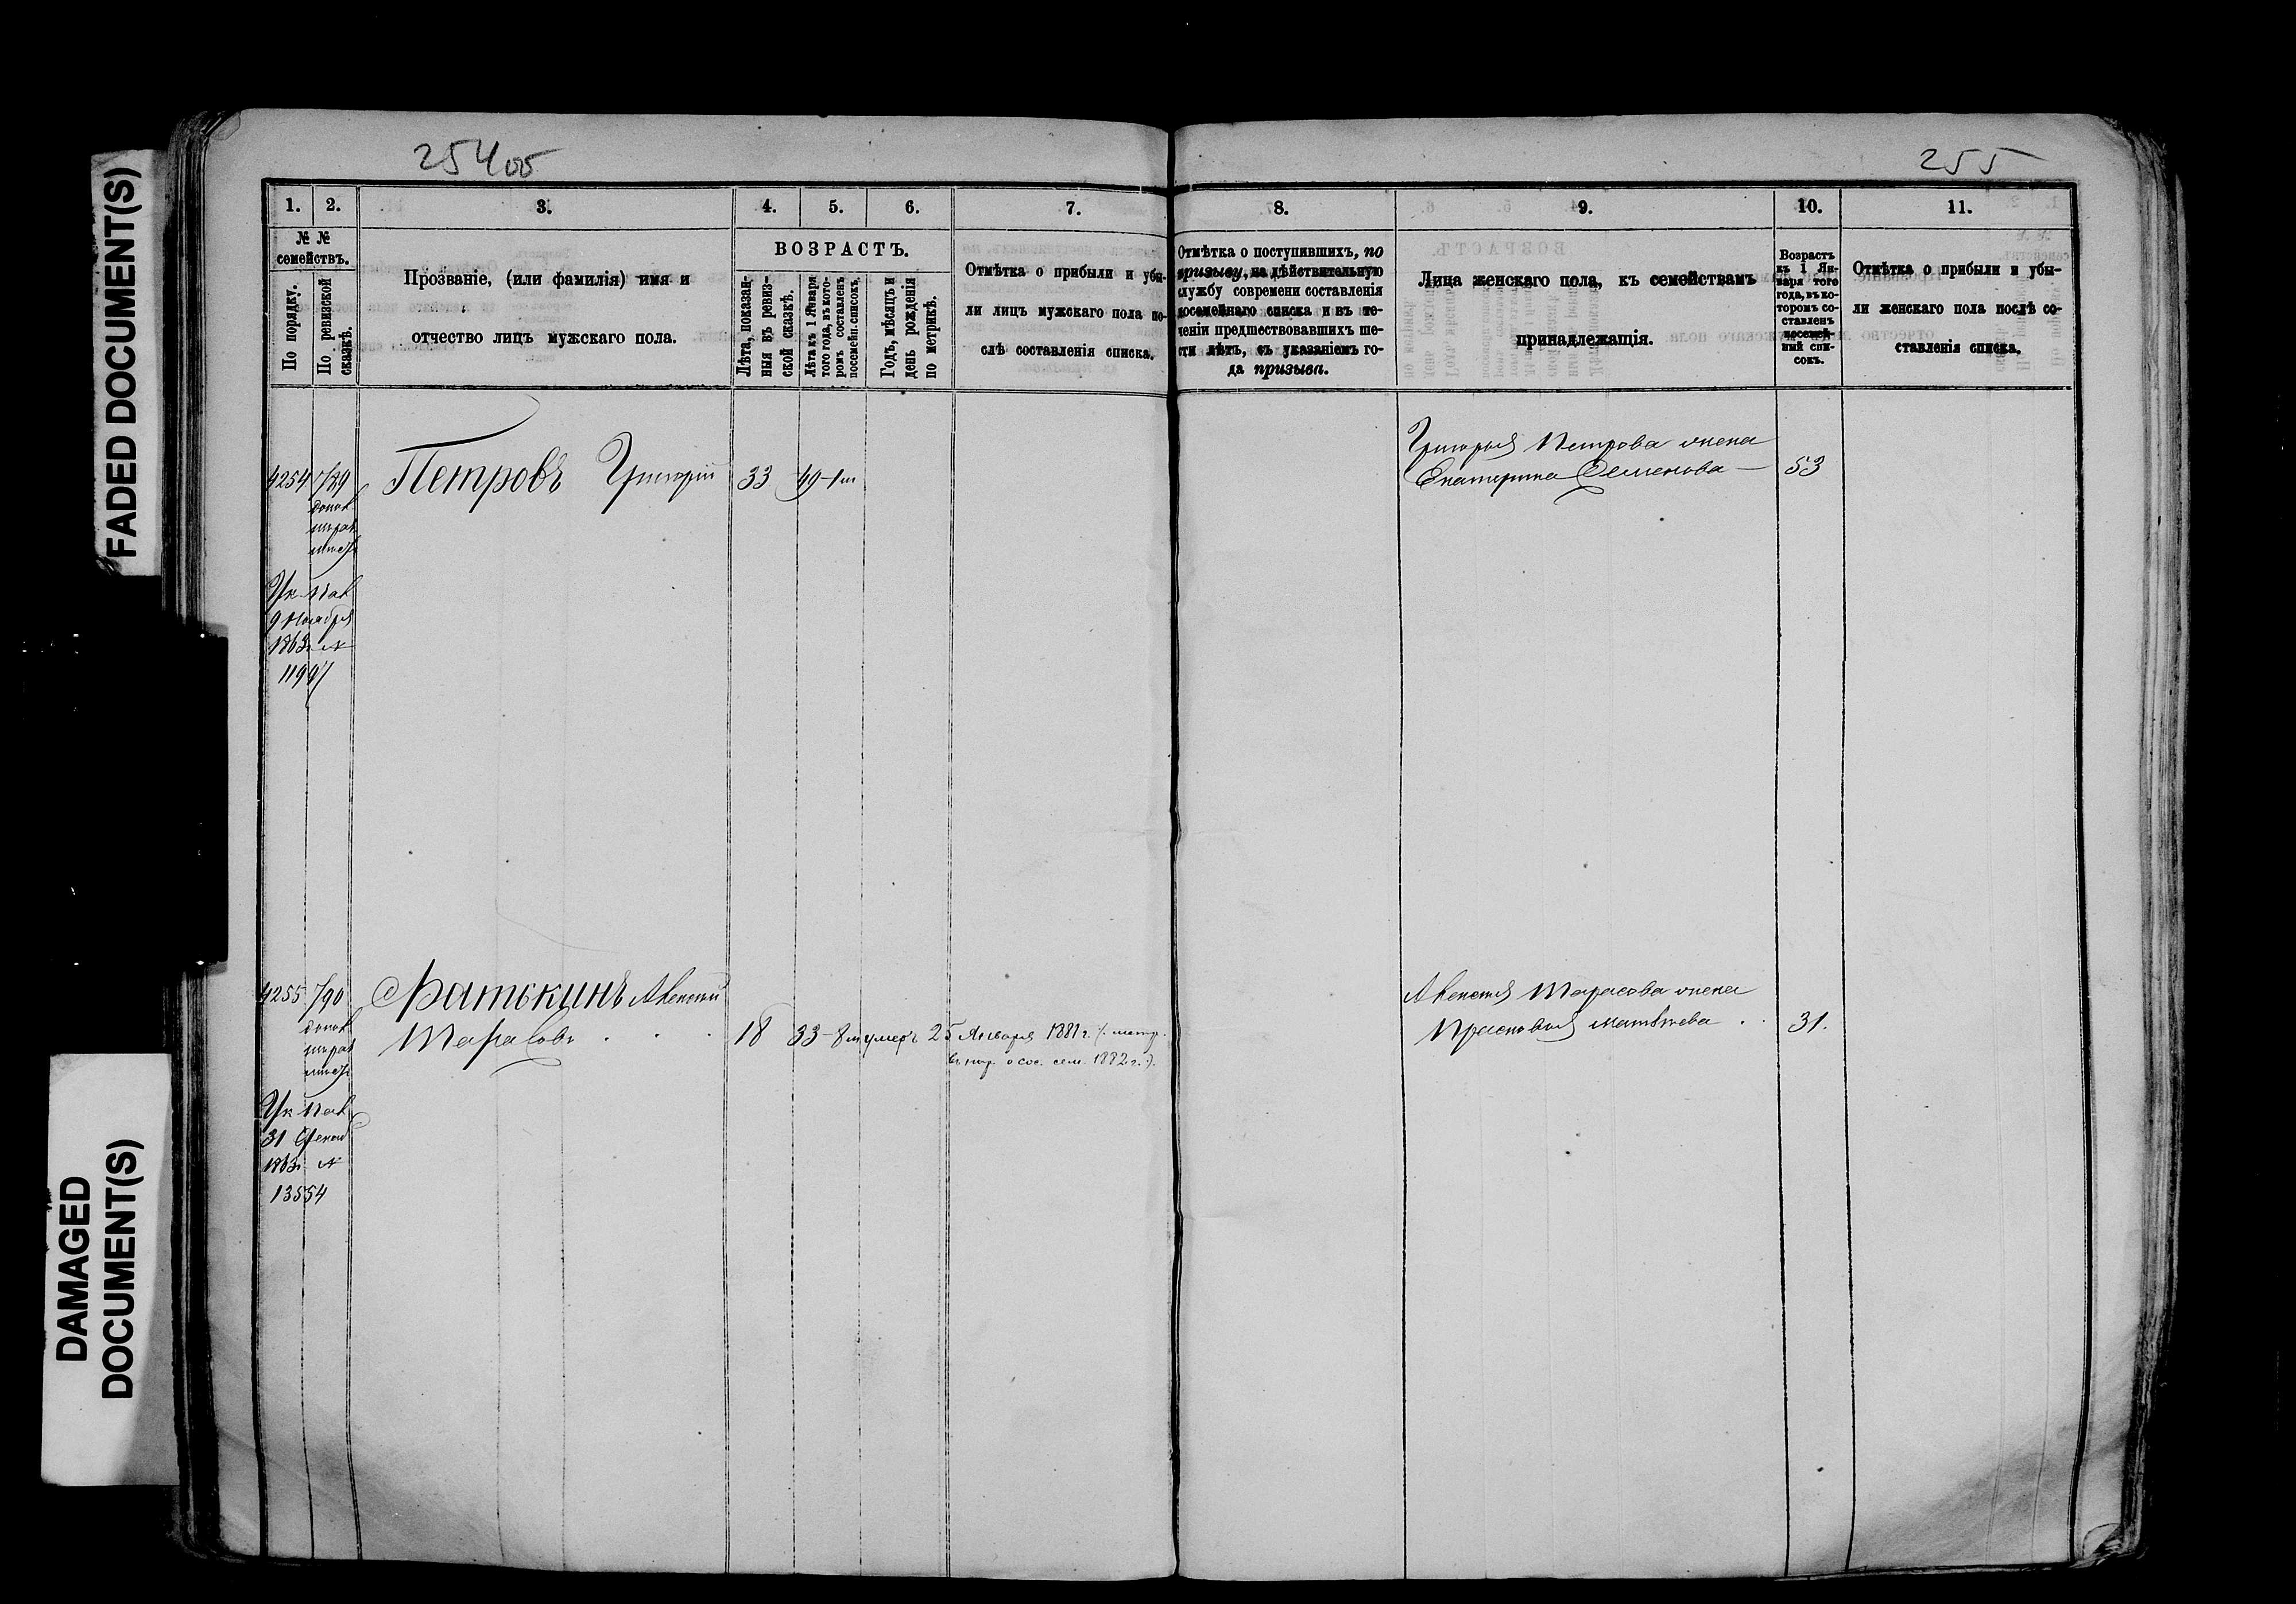 FADED DOCUMENT(S)
DAMAGED
DOCUMENT(S)
254об
255
1.
2.
3.
4.
5.
6.
7.
8.
9.
10.
11.
№ №
семействъ.
По порядку.
По ревизской
сказкѣ.
Прозваніе, (или фамилія) имя и
отчество лицъ мужскаго пола.
ВОЗРАСТЪ.
Лѣта, показан-
ныя въ ревиз-
ской сказкѣ.
Лѣта къ 1 Января
того года, въ кото-
ромъ составленъ
посемейн. списокъ.
Годъ, мѣсяцъ и
день рожденія
по метрикѣ.
Отмѣтка о прибыли и убы-
ли лицъ мужскаго пола по-
слѣ составленія списка.
Отмѣтка о поступившихъ, по
призыву, на дѣйствительную
службу современи составленія
посемейнаго списка и въ те-
ченіи предшествовавшихъ ше-
сти лѣтъ, съ указаніемъ го-
да призыва.
Лица женскаго пола, къ семействамъ
принадлежащія.
Возрастъ
къ 1 Ян-
варя того
года, въ ко-
торомъ со-
ставленъ
посемей-
ный спи-
сокъ.
Отмѣтка о прибыли и убы-
ли женскаго пола послѣ со-
ставленія списка.
4254
Петровъ Григорій 33 49
Григорья Петрова жена
Екатерина Семенова — 53
9 Ноября
4255 /90
Фатькинъ Авксентій
Тарасовъ . . . 18 33 умеръ 25 Января 1881 г.
1882 г.
Авксентія Тарасова жена
Прасковья Матвѣева . . 31.
31
13554